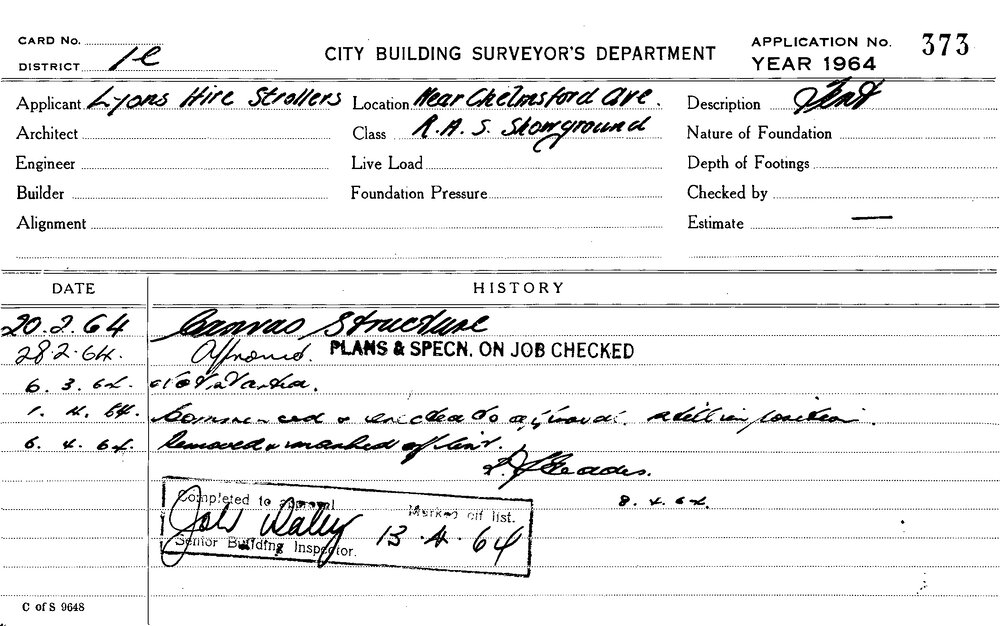 CARD No.
DISTRICT 1e
CITY BUILDING SURVEYOR'S DEPARTMENT
APPLICATION No. 373
YEAR 1964
Applicant Lyons Hire Strollers Location Near Chelmsford Ave. Description Tent
Architect Class R.A.S. Showground Nature of Foundation
Engineer Live Load Depth of Footings
Builder Foundation Pressure Checked by
Alignment Estimate —
DATE HISTORY
20.2.64 Canvas Structure
28.2.64. Approved. PLANS & SPECN. ON JOB CHECKED
6.3.64. Not started.
1.4.64. Commenced & erected to approval. still in position.
6.4.64. Removed & marked off list.
8.4.64.
Completed to approval Marked off list.
Daley 13.4.64
Senior Building Inspector.
C of S 9648